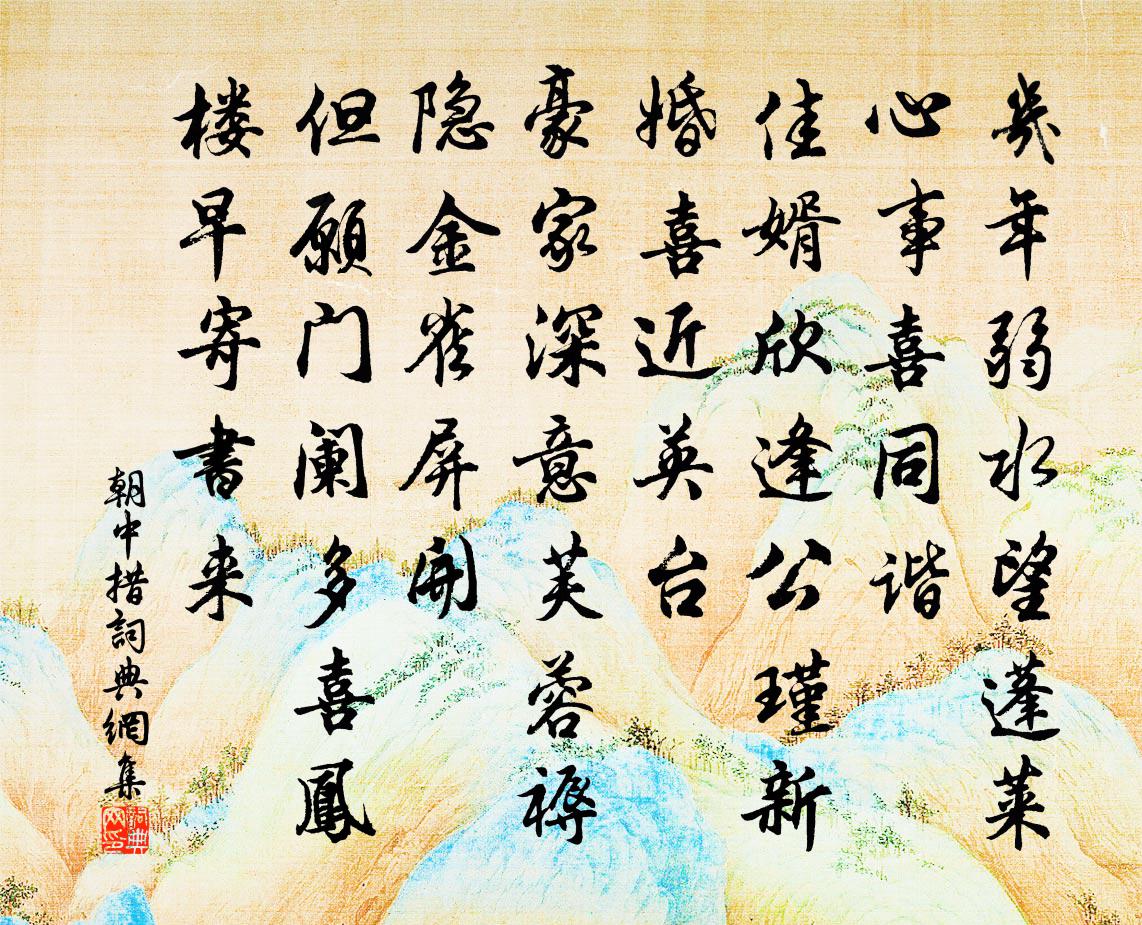 幾年弱水望蓬莱
心事喜同谐
佳婿欣逢公瑾新
婚喜近英台
豪家深意芙蓉褥
隐金雀屏開
但願门阑多喜鳳
楼早寄書来
朝中措詞典網集